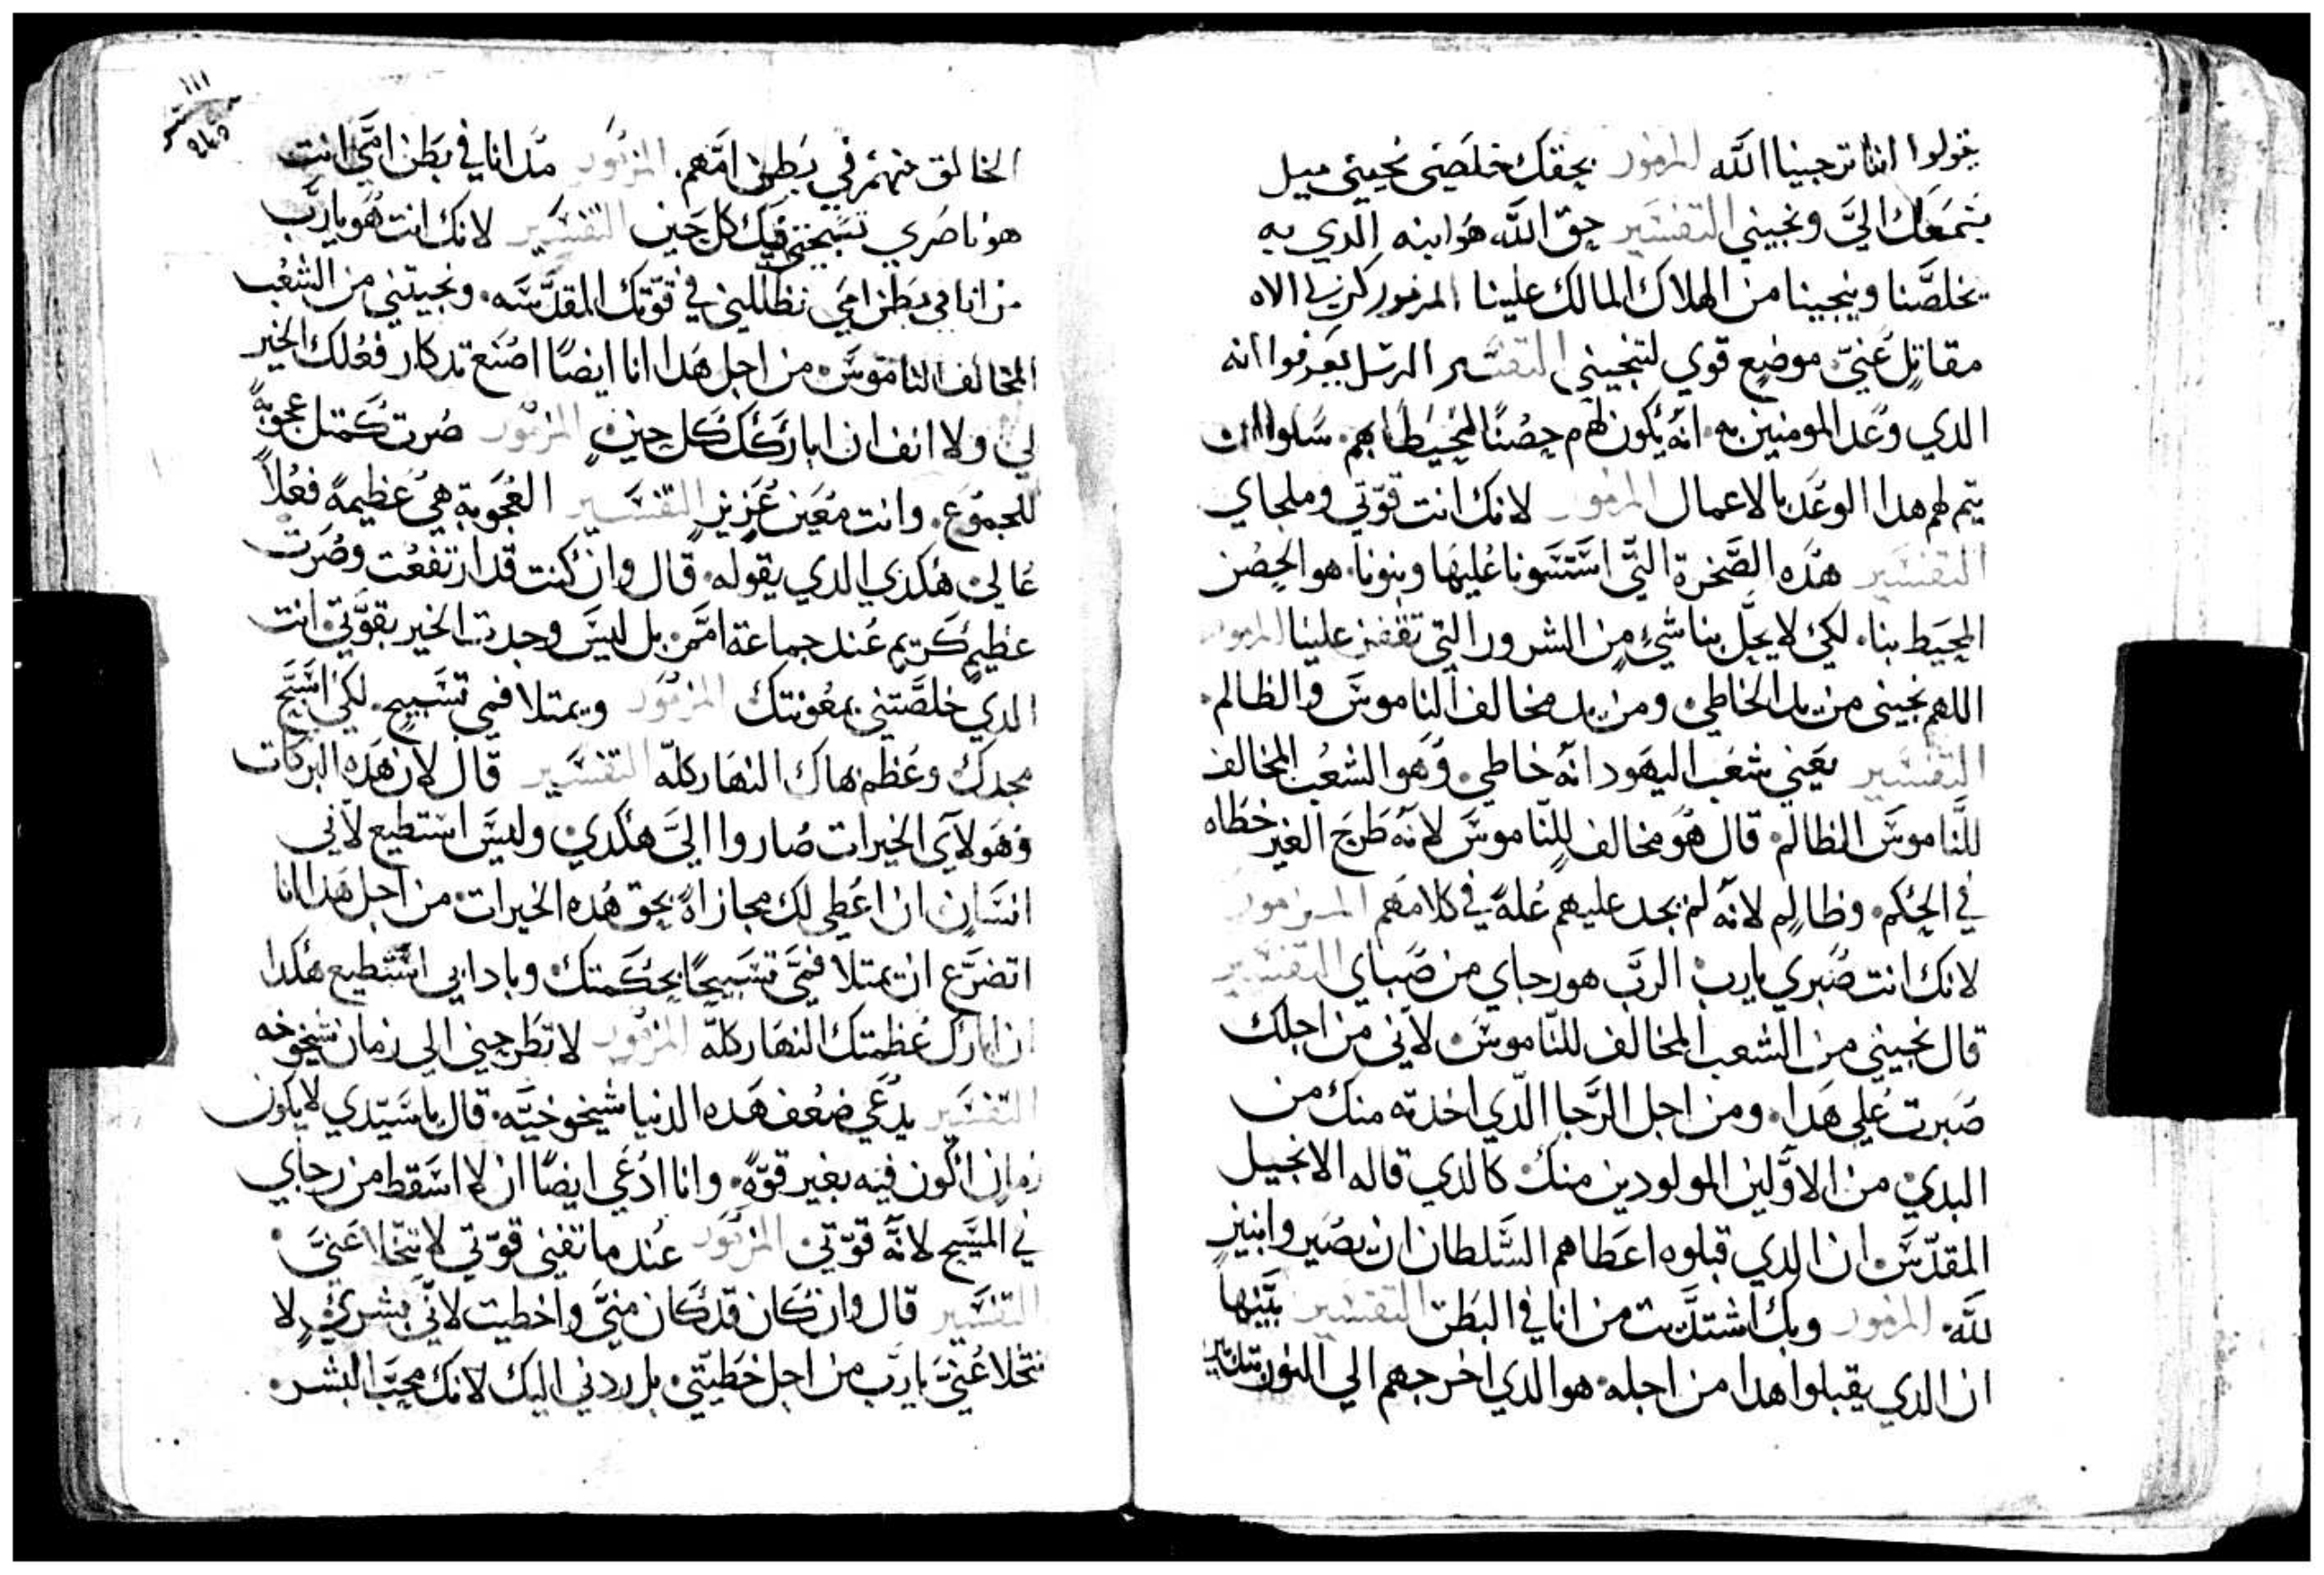 يقولوا اننا ترجينا الله المزمور بحقك خلصني نجيني ميل
بسمعك اليَّ ونجيني التفسير حق الله هو ابنه الدي به
يخلصنا وينجينا من الهلاك المالك علينا المزمور كن لي الاه
مقاتل عنيّ موضع قوي لتنجيني التفسير الرسل يعرفوا انه
الدي وعد المومنين به انه يكون لهم حصنًا محيطًا بهم سلوا ان
يتم لهم هدا الوعد بالاعمال المزمور لانك انت قوّتي وملجاي
التفسير هده الصَّخرة التي استسونا عليها وبنونا هو الحصن
المحيط بنا لكي لا يحل بنا شيءٍ من الشرور التي تقفز علينا المزمور
اللهم نجيني من يد الخاطي ومن يد مخالف الناموس والظالم
التفسير يعني شعب اليهود انه خاطي وهو الشعب المخالف
للناموس الظالم قال هو مخالف للناموس لانه طرح الغير خطاه
في الحكم وظالم لانه لم يجد عليهم علة في كلامهم المزمور
لانك انت صبري يارب الرَّب هو رجاي من صباي التفسير
قال نجيني من الشعب المخالف للناموس لانّي من اجلك
صبرت على هدا ومن اجل الرَّجا الّدي اخدته منك من
البدي من الاوَّلين المولودين منك كالدي قاله الانجيل
المقدّس ان الدي قبلوه اعطاهم السَّلطان ان يصيروا بنين
لله المزمور وبك اشتدَّيت من انا في البطن التفسير بيَّنها
ان الدي يقبلوا هدا من اجله هو الدي اخرجهم الي النور
١١١
الخالق منهم في بطن امّهم المزمور مد انا في بطن امّي انت
هو ناصري تسبحتي فيك كل حين التفسير لانك انت هو يارب
من انا في بطن امي تظللني في قوّتك المقدَّسه ونجيتني من الشعب
المخالف الناموس من اجل هدا انا ايضًا اصنع تدكار فعلك الخير
لي ولا انف ان اباركك كل حين المزمور صرت كمتل عجوبةً
للجموع وانت معين عزيز التفسير العجوبة هي عظيمة فعلاً
عالي هكدي الدي يقوله قال وان كنت قد ارتفعت وصرت
عظيم كريم عند جماعة امم بل ليس وجدت الخير بقوَّتي انت
الدي خلصَّتني بمعونتك المزمور ويمتلا فمي تسبيح لكي اسبَّح
مجدك وعظم بهاك النهار كله التفسير قال لان هده البركات
وهولآي الخيرات صاروا اليَّ هكدي وليس استطيع لاني
انسان ان اعطي لك مجازاة بحق هده الخيرات من اجل هدا انا
اتضرَّع ان يمتلا فميَّ تسبيحًا بحكمتك وبادابي استطيع هكدا
ان ابارك عظمتك النهار كلّه المزمور لا تطرحني الي زمان شيخوخه
التفسير يدعي ضعف هده الدنيا شيخوخيَّه قال يا سيّدي لا يكون
زمان اكون فيه بغير قوّة وانا ادعي ايضًا ان لا اسقط من رجاي
في المسيح لانه قوّتي المزمور عند ما تفني قوّتي لا تتخلا عنيَّ
التفسير قال وان كان قد كان منيَّ واخطيت لانّي بشريّ لا
تتخلا عنيَّ يارَّب من اجل خطيّتي بل ردني اليك لانك محبّ البشر